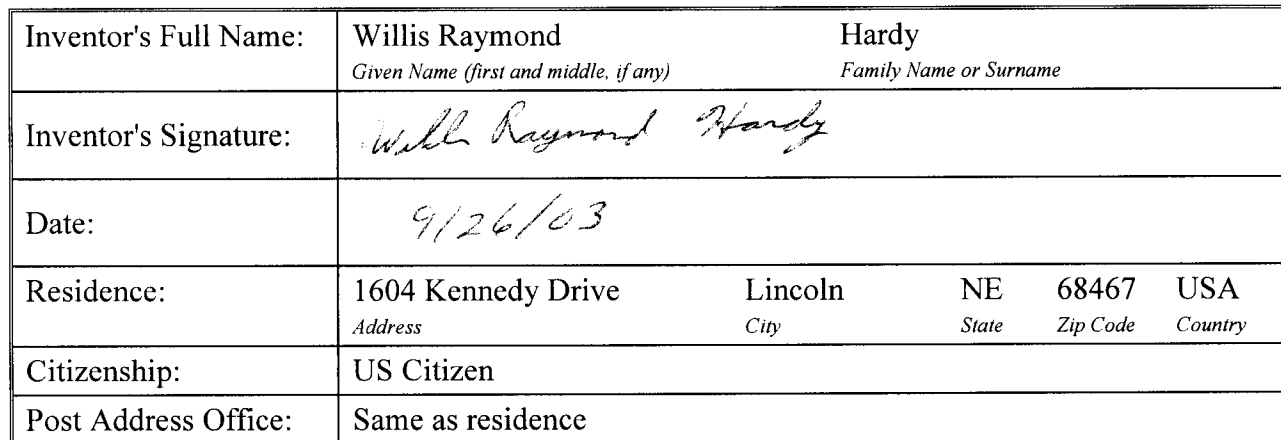 Inventor's Full Name: Willis Raymond Hardy
Given Name (first and middle, if any) Family Name or Surname
Inventor's Signature: Willis Raymond Hardy
Date: 9/26/03
Residence: 1604 Kennedy Drive Lincoln NE 68467 USA
Address City State Zip Code Country
Citizenship: US Citizen
Post Address Office: Same as residence